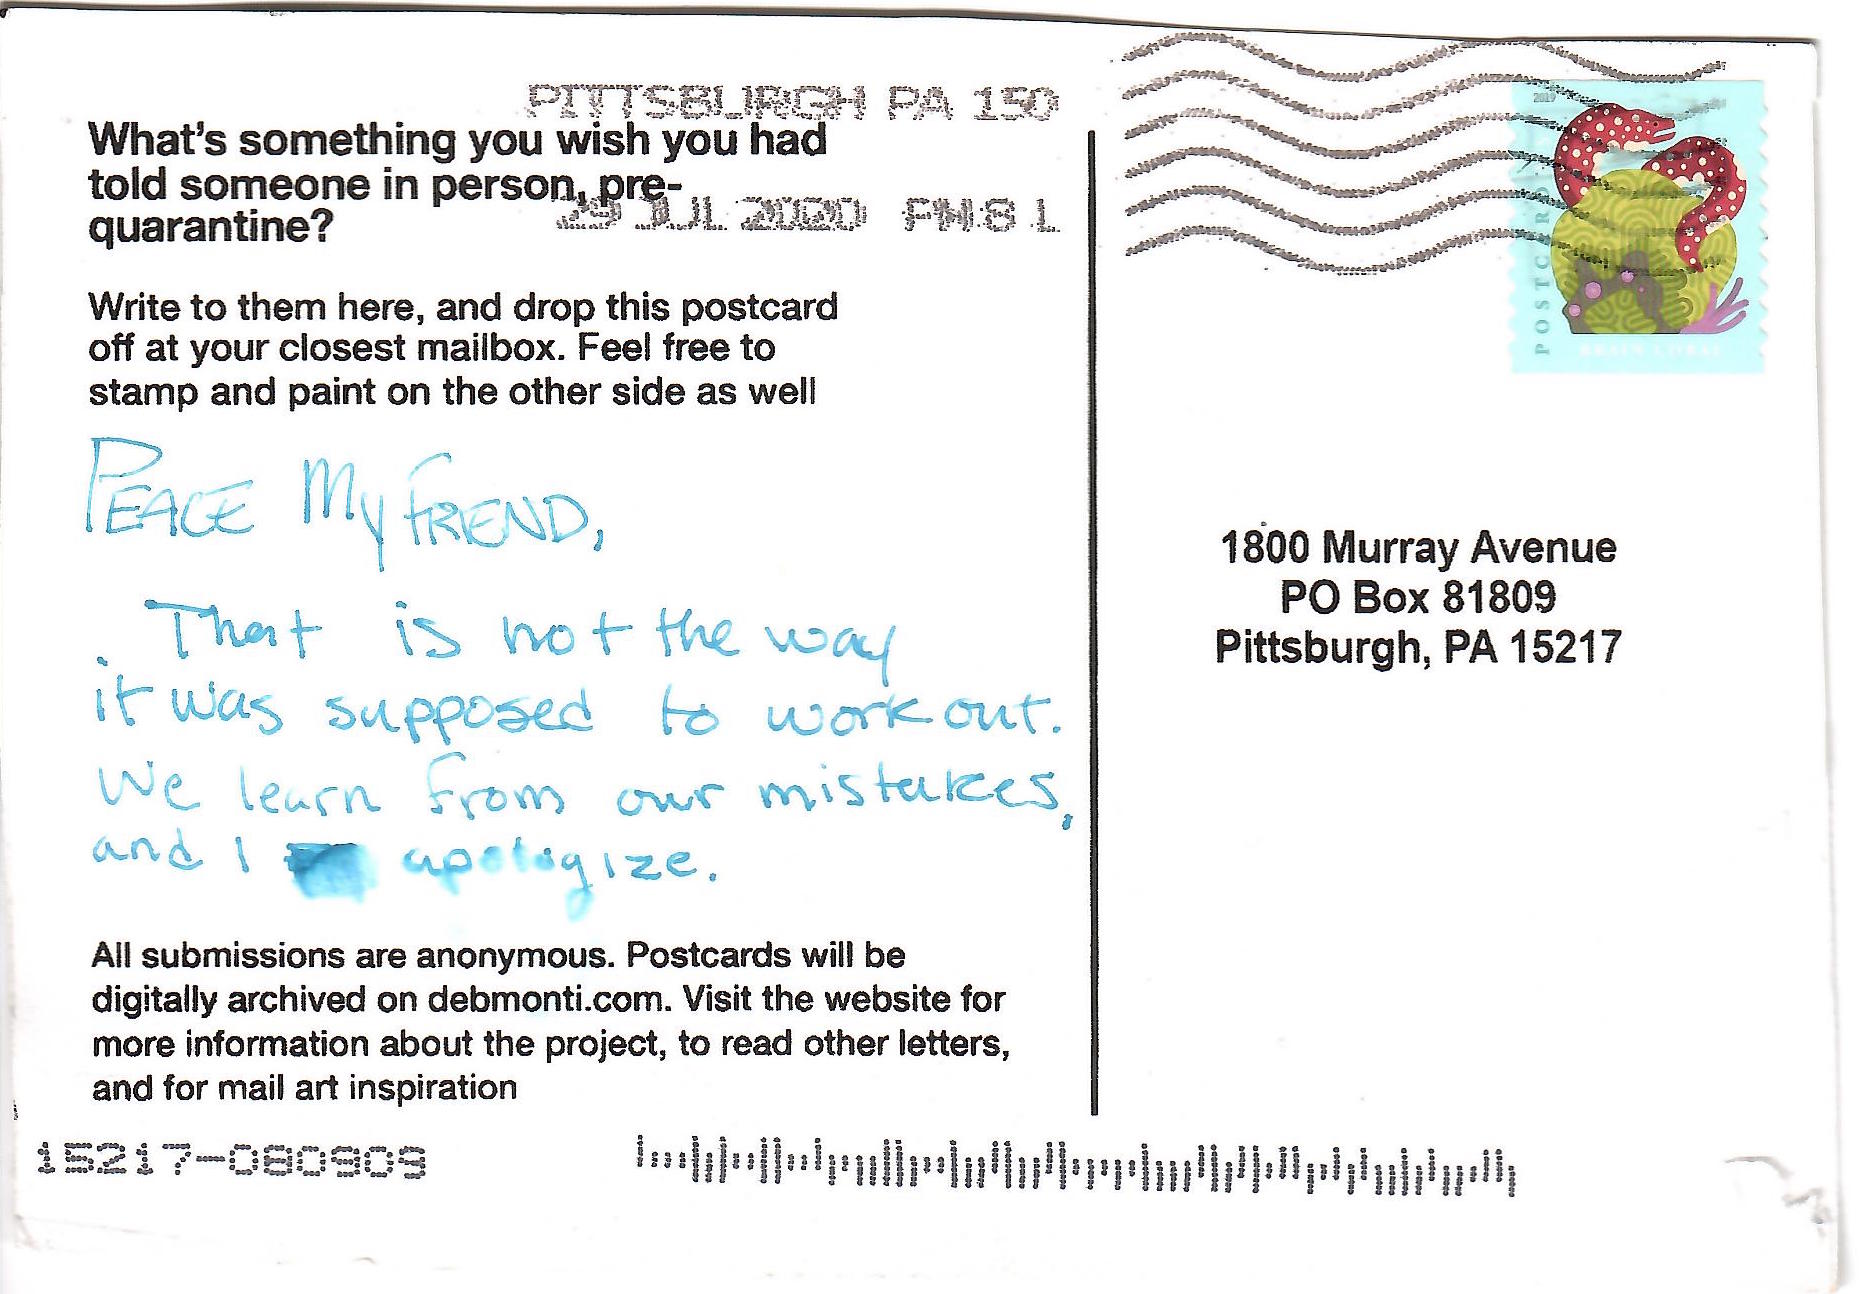 PITTSBURGH PA 150
29 JUL 2020 PM 8 L
What's something you wish you had
told someone in person, pre-
quarantine?
Write to them here, and drop this postcard
off at your closest mailbox. Feel free to
stamp and paint on the other side as well
PEACE My FRIEND,
That is not the way
it was supposed to work out.
We learn from our mistakes,
and I apologize.
All submissions are anonymous. Postcards will be
digitally archived on debmonti.com. Visit the website for
more information about the project, to read other letters,
and for mail art inspiration
15217-080909
2019
POSTCARD
BRAIN CORAL
1800 Murray Avenue
PO Box 81809
Pittsburgh, PA 15217